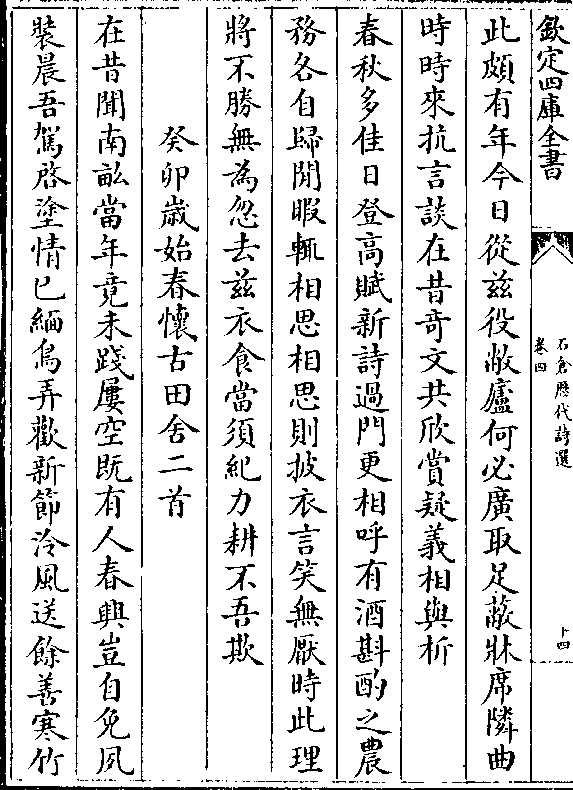 欽定四庫全書
石倉歷代詩選
卷四
十四
此頗有年今日從兹役敝廬何必廣取足蔽牀席隣曲
時時來抗言談在昔竒文共欣賞疑義相與析
春秋多佳日登高賦新詩過門更相呼有酒斟酌之農
務各自歸閒暇輒相思相思則披衣言笑無厭時此理
將不勝無為忽去兹衣食當須紀力耕不吾欺
癸卯歲始春懷古田舍二首
在昔聞南畝當年竟未踐屢空既有人春興豈自免夙
裝晨吾駕啓塗情已緬鳥弄歡新節泠風送餘善寒竹